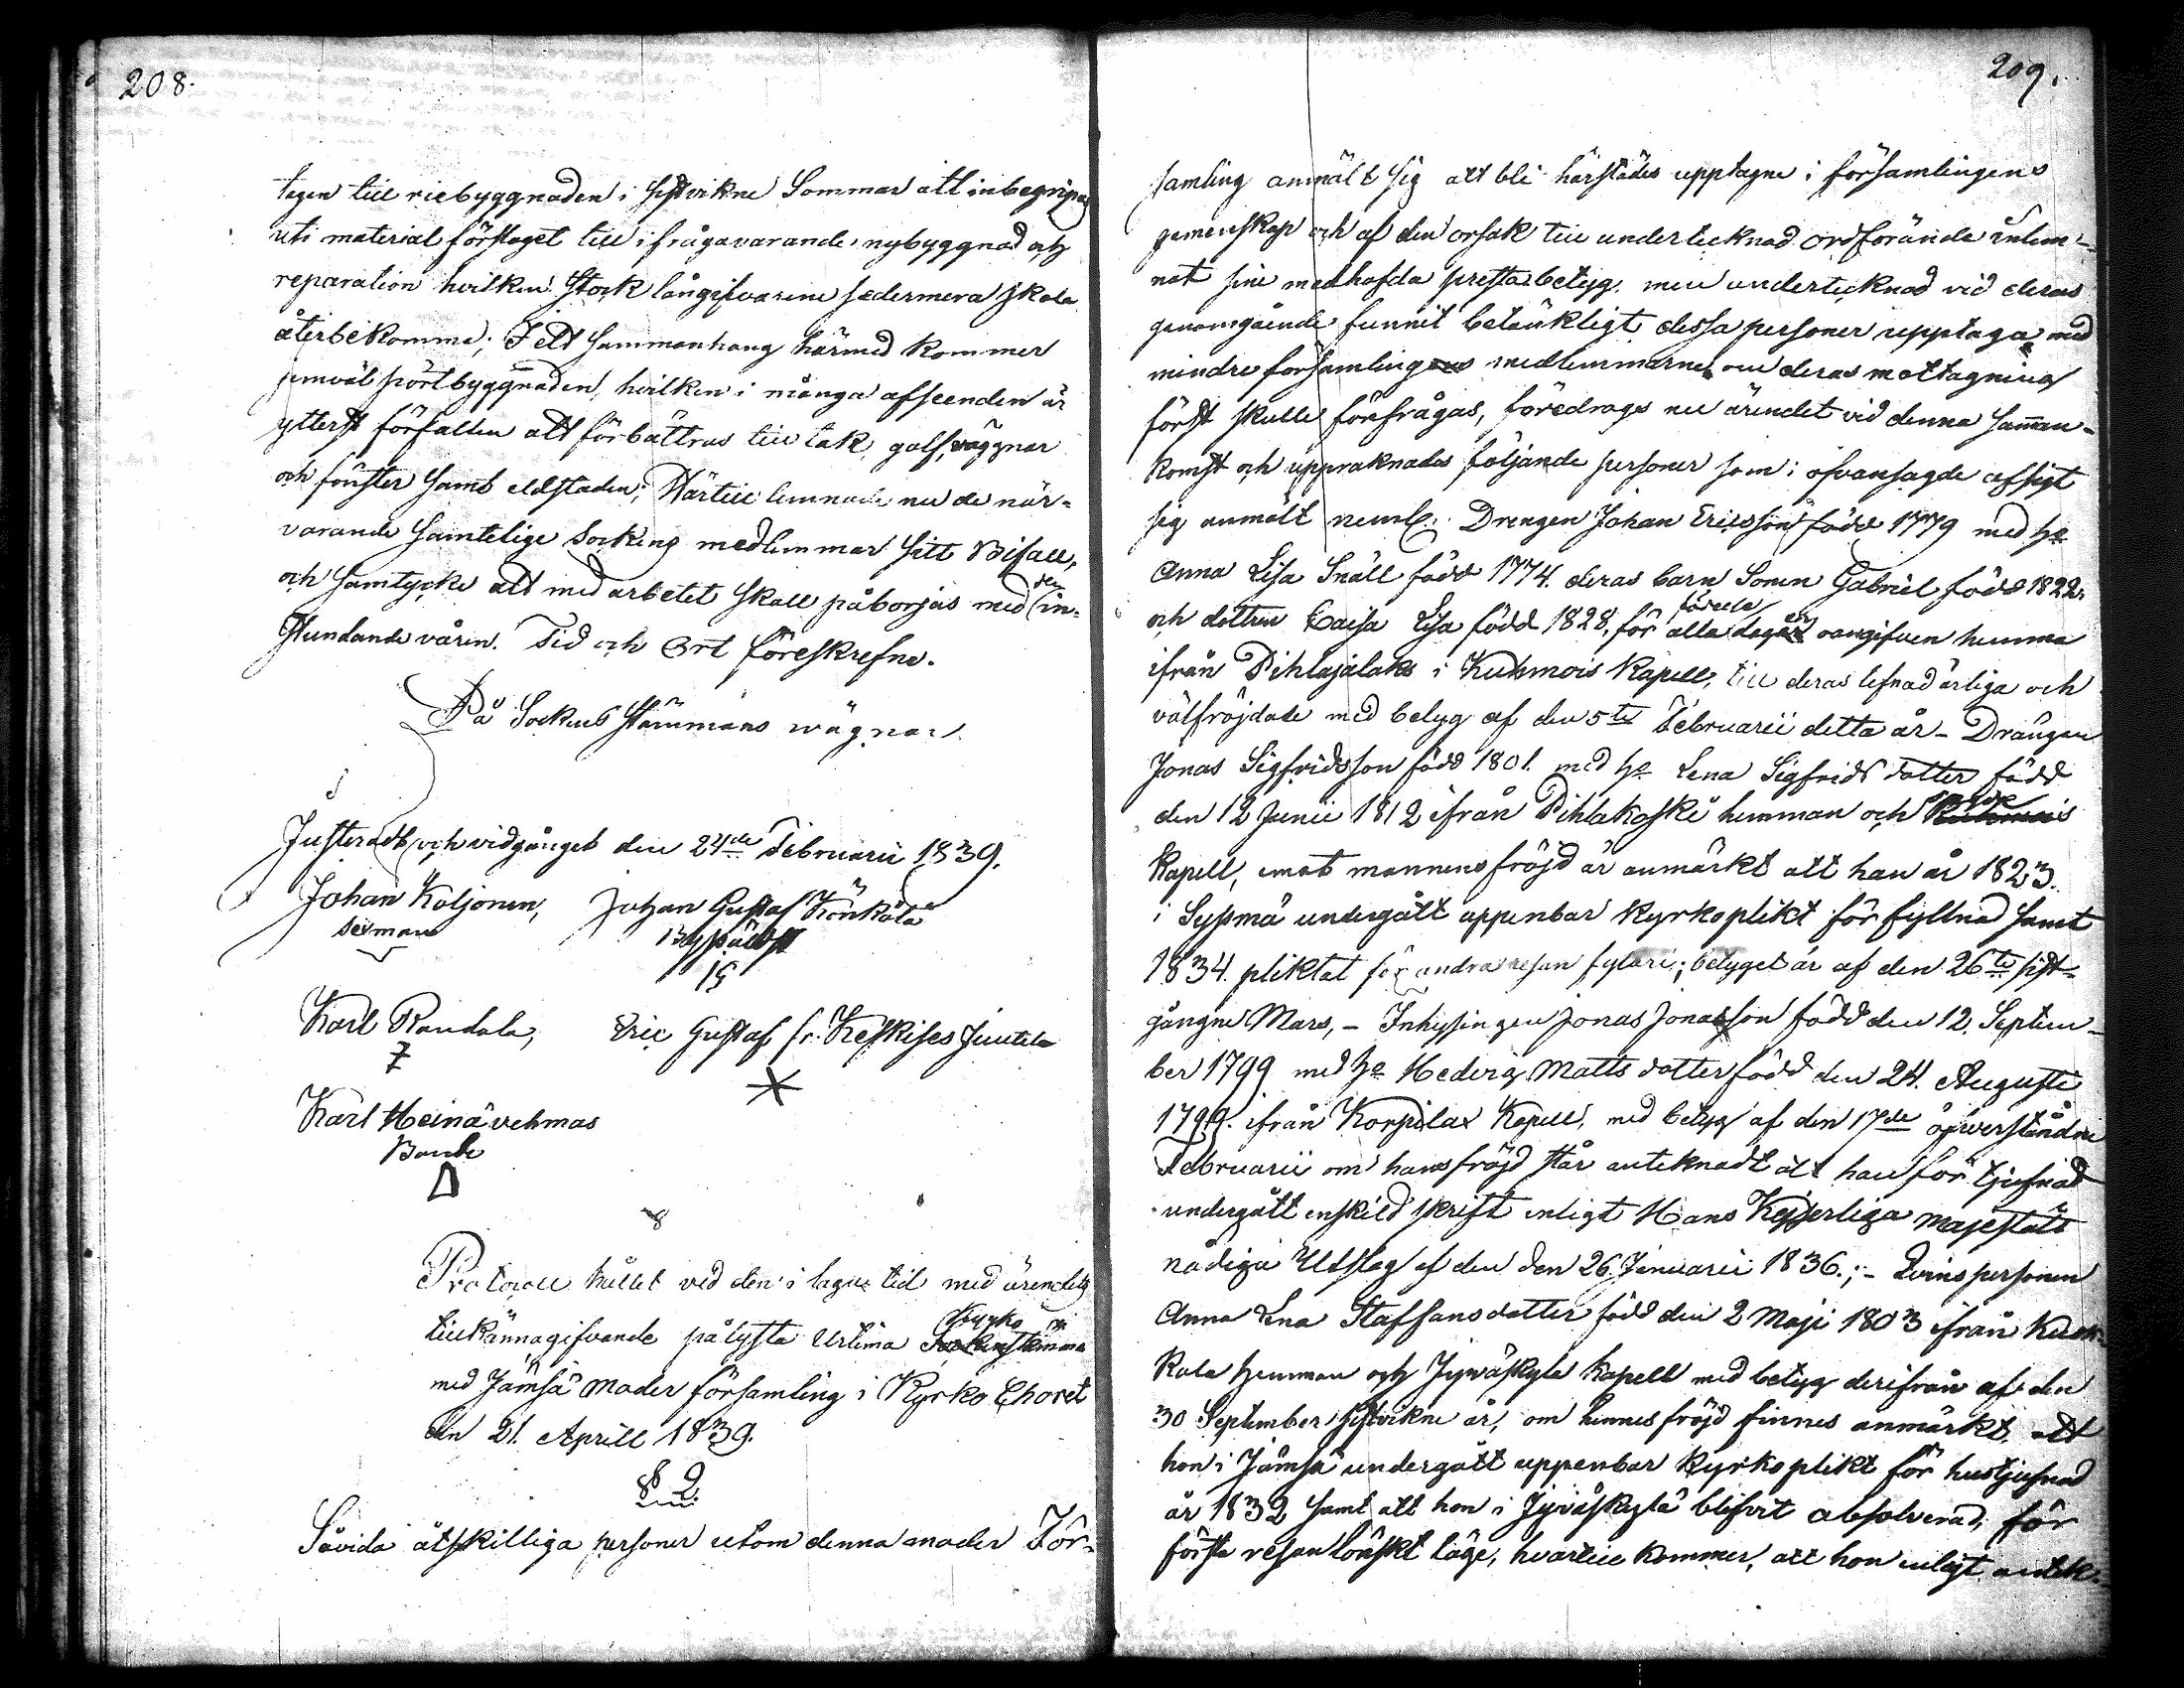 208.
tagen till riebyggnaden i sistvikne Sommar att inbegripas
uti material förslaget till ifrågavarande nybyggnad och
reparation hvilken Stock långifvarene sedermera skola
återbekomma; I ett sammanhang härmed kommer
jemväl pörtbyggnaden, hvilken i många afseenden är
ytterst förfallen att förbättras till tak, golf, väggnar
och fönster samt eldstaden; Härtill lemnade nu de när-
varande samtelige Sockens medlemmar sitt Bifall,
och samtycke att med arbetet skall påborjas med den in-
stundande våren. Tid och Ort föreskrefne.
På Sockne Stämmans wägnar
Justeradt och vidgånget den 24de Februarii 1839.
Johan Koljonen, Johan Gustaf Könkölä
sexman
Karl Randala, Eric Gustaf fr. Keskises Juutila
Karl Heinävehmas
Bonde
Protocoll hållet vid den i laga tid med ärendets
tillkännagifvande pålysta Urtima Kyrko Sockenstämma
med Jämsä Moder församling i Kyrko Choret
den 21. Aprill 1839.
§ 2
Såvida åtskilliga personer utom denna moder För-
209.
samling anmält sig att bli härstädes upptagne i församlingens
gemenskap och af den orsak till undertecknad Ordförande inlem-
nat sine medhafda prestabetyg, men undertecknad vid deras
genomgående funnit betänkligt dessa personer upptaga med
mindre församlingens medlemmarne om deras mottagning
först skulle förefrågas, föredrogs nu ärendet vid denna samman-
komst och uppräknades följande personer som i ofvansagde afsigt
sig anmält neml. Drengen Johan Ericsson född 1779 med ho
Anna Lisa Snäll född 1774. deras barn Sonen Gabriel född 1822.
och dottren Caisa Lisa född 1828, för alla födelse dagen oangifven hemma
ifrån Pihlajalaks i Kuhmois Kapell, till deras lefnad ärliga och
välfrejdade med betyg af den 5te Februarii detta år – Drängen
Jonas Sigfridsson född 1801. med ho Lena Sigfrids dotter född
den 12 Junii 1812 ifrån Pihlakoski hemman och Kuhmois
Kapell, emot mannens fröjd är anmärkt att han år 1823.
i Sysmä undergått uppenbar Kyrkoplikt för fyllnad samt
1834. pliktat för andra resan fylleri; betyget är af den 26te sist-
gångne Mars, – Inhysingen Jonas Jonasson född den 12. Septem-
ber 1799 med ho Hedvig Matts dotter född den 24. Augusti
1799. ifrån Korpilax Kapell, med betyg af den 17de öfwerståndne
Februarii om hans fröjd står anteknadt att han för tjufnad
undergått enskild skrift enligt Hans Kejserliga Majestäts
nådiga Utslag af den den 26 Januarii 1836.; – Qvinspersonen
Anna Lena Staffansdotter född den 2 Maji 1803 ifrån Kuok-
kala hemman och Jyväskylä Kapell med betyg derifrån af den
30 September sistvikne år, om hennes fröjd finnes anmärkt, att
hon i Jämsä undergått uppenbar Kyrkoplikt för hustjufnad
år 1832 samt att hon i Jyväskylä blifvit absolverad, för
första resan lönskt läge, hvartill kommer, att hon enligt antek-